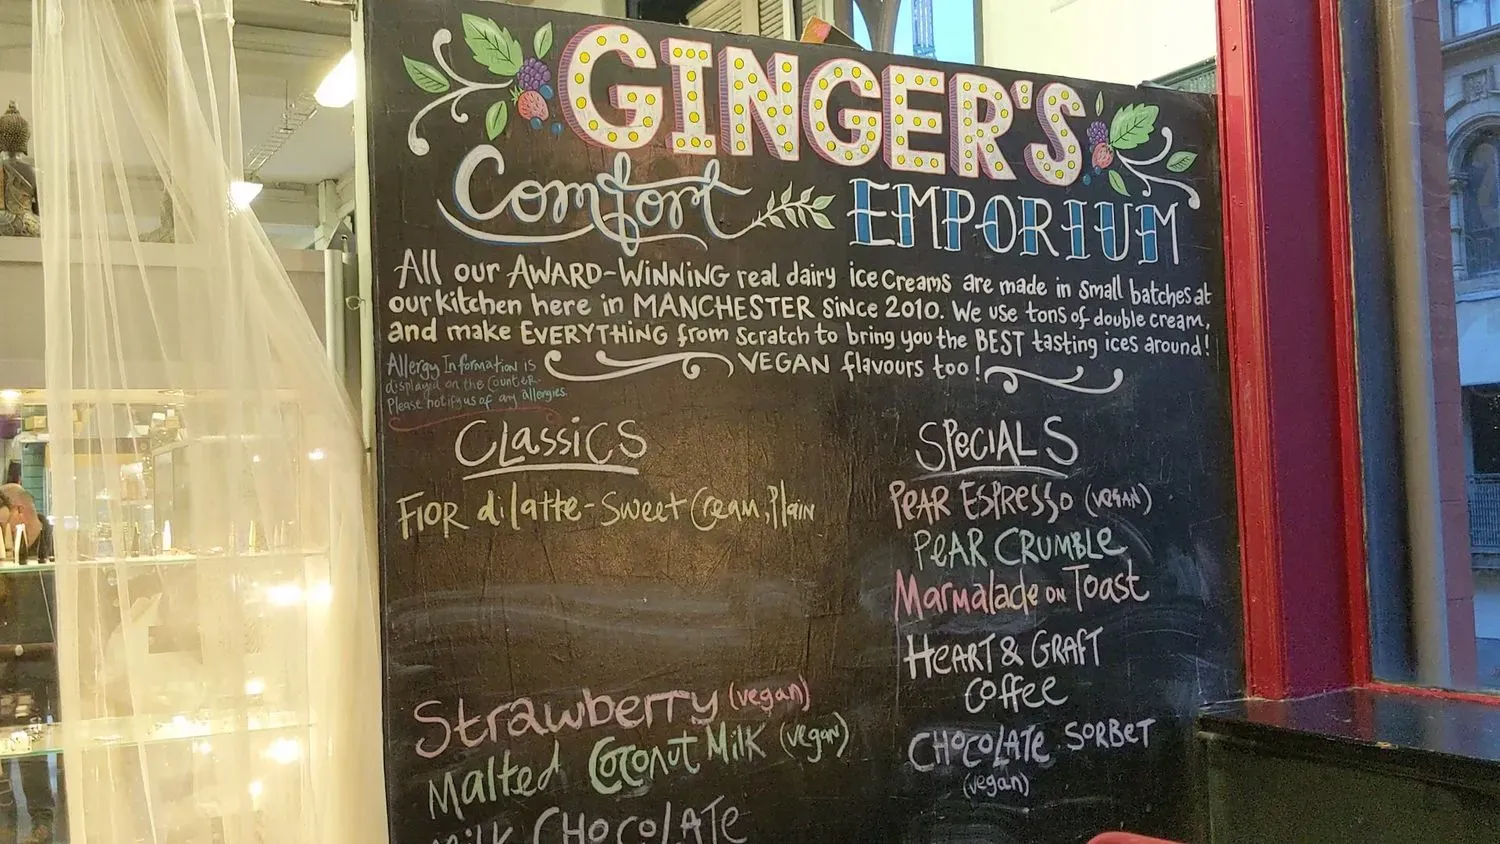 GINGER'S
Comfort EMPORIUM
All our AWARD-WINNING real dairy ice Creams are made in small batches at
our kitchen here in MANCHESTER since 2010. We use tons of double cream,
and make EVERYTHING from scratch to bring you the BEST tasting ices around!
VEGAN flavours too!
Allergy Information is
displayed on the counter.
Please notify us of any allergies.
CLassics
FIOR di latte - Sweet Cream, Plain
Strawberry (vegan)
Malted Coconut Milk (vegan)
Milk CHOCOLATE
SPeCIALS
PEAR ESPRESSO (VEGAN)
PeAR CRUMBLE
Marmalade ON Toast
HeART & GRAFT
Coffee
CHOCOLATE SORBET
(vegan)